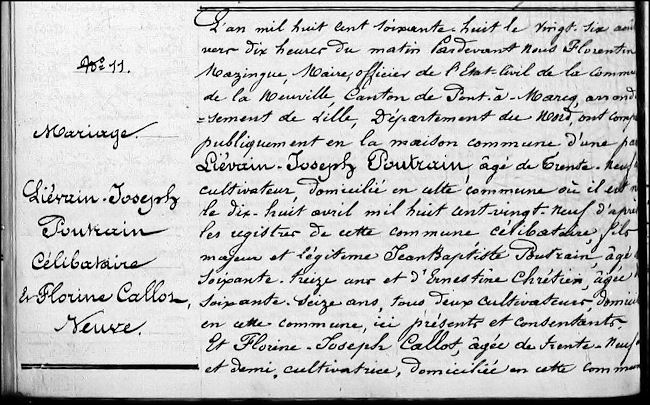 N° 11.
Mariage
Liévain-Joseph
Poutrain
Célibataire
Et Florine Callot,
Veuve.
L'an mil huit cent soixante-huit le vingt-six
vers dix heures du matin Pardevant nous Florentin
Mazingue, Maire, officier de l'État-Civil de la Commu
de la Neuville, Canton de Pont-à-Marcq, arrond
=sement de Lille, Département du Nord, ont comp
publiquement en la maison commune d'une pa
Liévain-Joseph Poutrain, âgé de Trente-Neuf
cultivateur, domicilié en cette commune où il est n
le dix-huit avril mil huit cent-vingt-neuf d'aprè
les registres de cette commune célibataire, fils
majeur et légitime Jean Baptiste Poutrain, âgé d
soixante-treize ans et d'Ernestine Chrétien, âgée
soixante-seize ans, tous deux cultivateurs, domici
en cette commune, ici présents et consentants.
Et Florine-Joseph Callot, âgée de trente-neuf
et demi, cultivatrice, domiciliée en cette commun